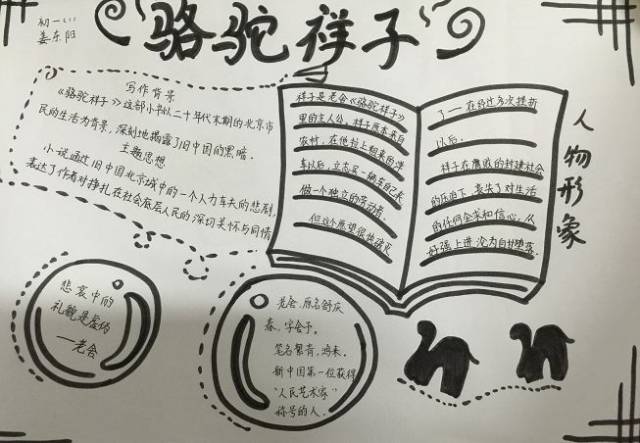 骆驼祥子
初一
姜东阳
写作背景
《骆驼祥子》这部小说以二十年代末期的北京市
民的生活为背景,深刻地揭露了旧中国的黑暗。
主题思想
小说通过旧中国北京城中的一个人力车夫的悲剧,
表达了作者对挣扎在社会底层人民的深切关怀与同情
祥子是老舍《骆驼祥子》
里的主人公,祥子原本来自
农村,在他拉上租来的洋
车以后,立志买一辆自己来
做一个独立的劳动者。
但这个愿望很快破灭
了——在经过多次挫折
以后,
祥子在腐败的封建社会
的压迫下,丧失了对生活
的任何企求和信心,从
好强上进沦为自甘堕落。
人物形象
悲哀中的
礼貌是虚伪
—老舍
老舍,原名舒庆
春,字舍予。
笔名絜青,鸿来。
新中国第一位获得
"人民艺术家"
称号的人。